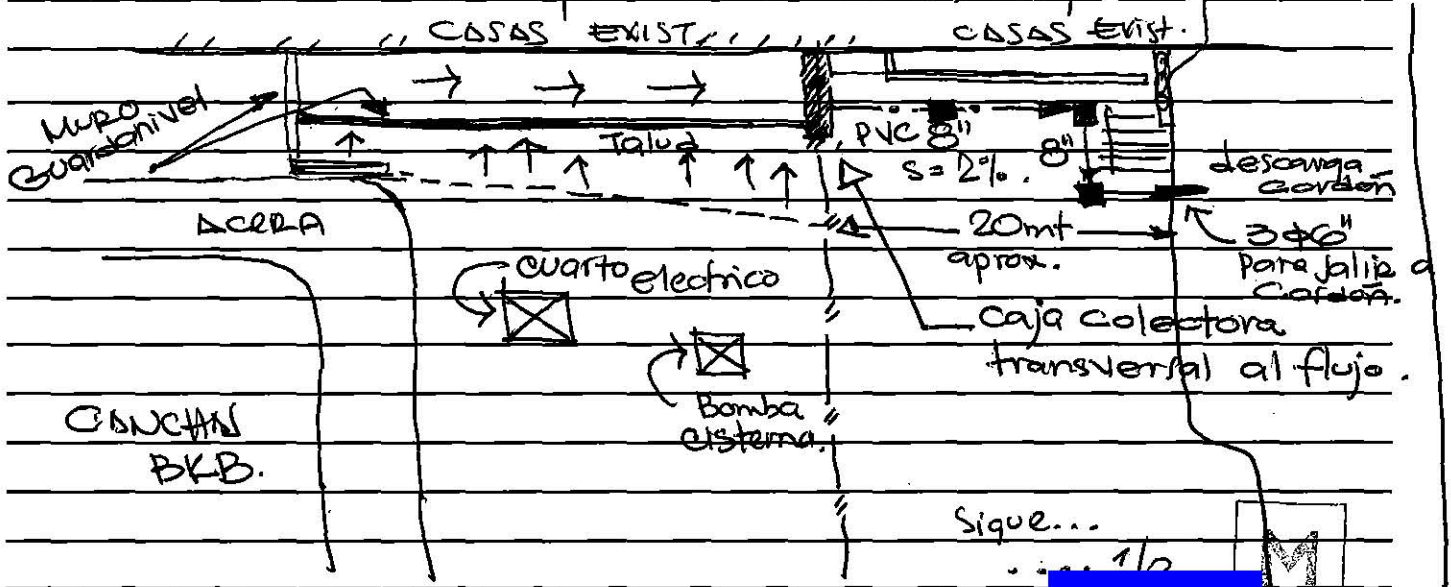 CASAS EXIST.
CASAS Exist.
MURO
Guardanivel
Talud
PVC 8"
S=2%.
8"
descarga
Cordón
ACERA
20mt
aprox.
3φ6"
para
a
Cordón.
cuarto electrico
caja colectora
transversal al flujo.
Bomba
cisterna.
CANCHA
BKB.
Sigue...
M